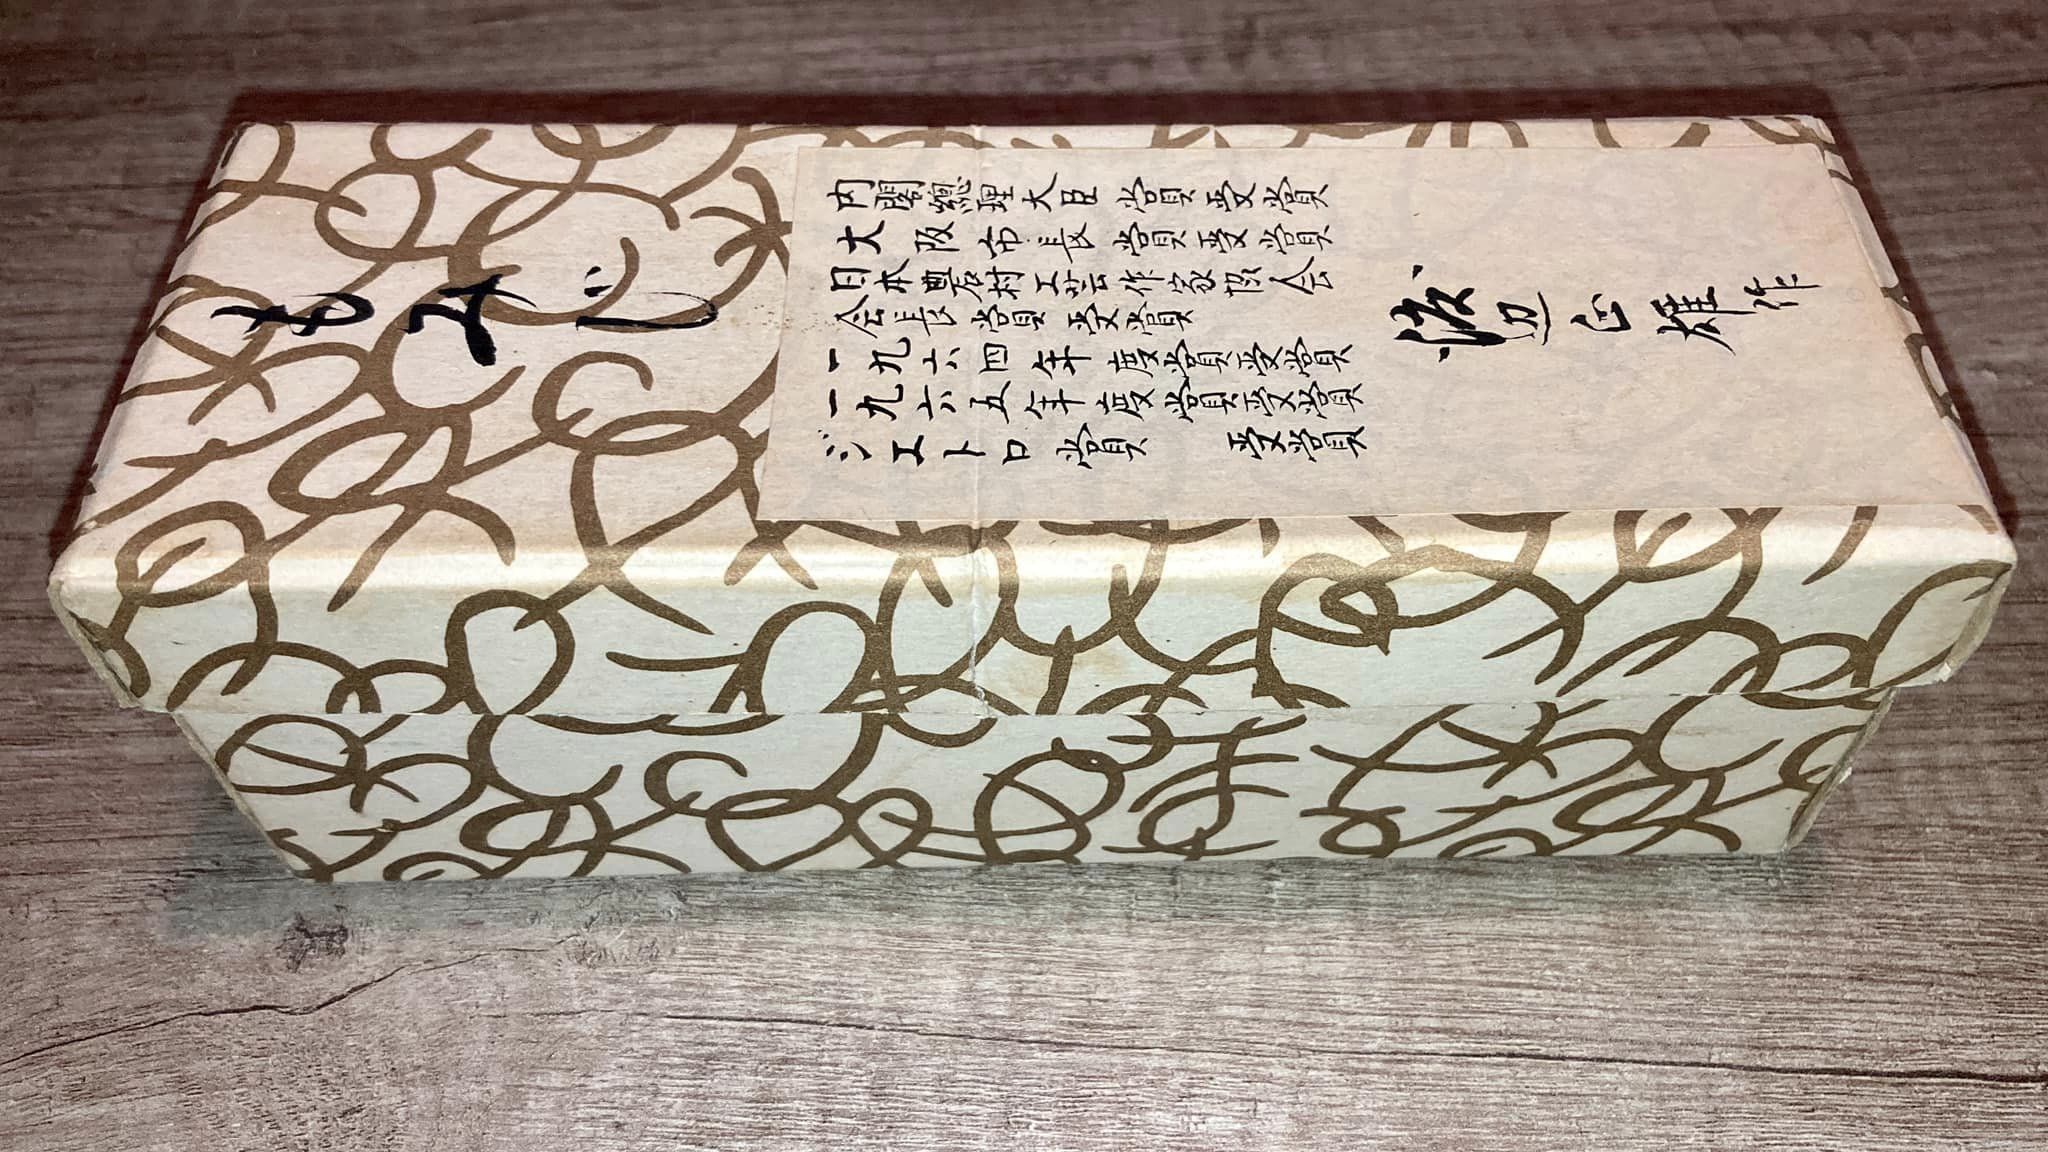 もみじ
内閣總理大臣賞受賞
大阪市長賞受賞
日本農村工芸作家協会
会長賞受賞
一九六四年度賞受賞
一九六五年度賞受賞
ジエトロ賞 受賞
渡辺正雄作